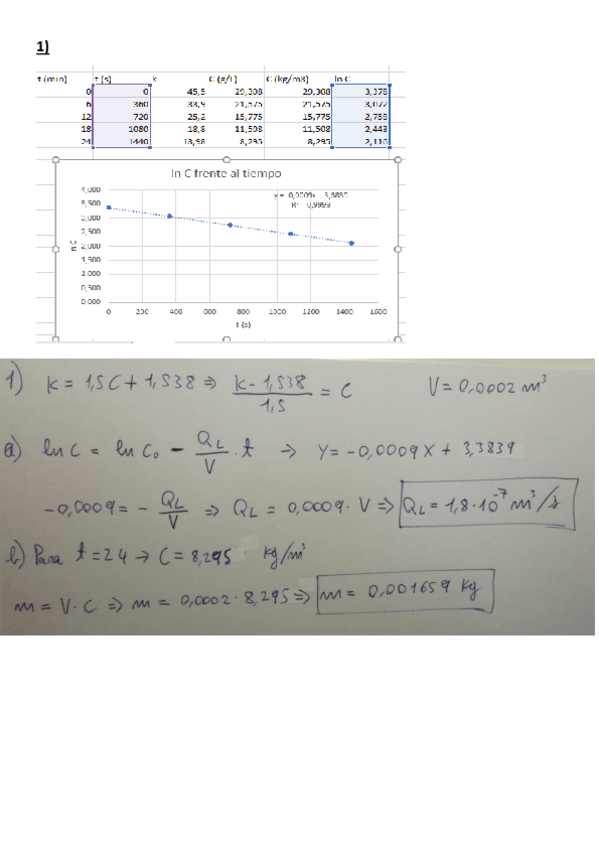 1)
t (min) t (s) k C (g/L) C (kg/m3) ln C
0 0 45,5 29,308 29,308 3,378
6 360 33,9 21,575 21,575 3,072
12 720 25,2 15,775 15,775 2,758
18 1080 18,8 11,508 11,508 2,443
24 1440 13,98 8,295 8,295 2,116
ln C frente al tiempo
R² 0,9999
4,000
3,500
3,000
2,500
2,000
1,500
1,000
0,500
0,000
ln C
0 200 400 600 800 1000 1200 1400 1600
t (s)
1) k = 1,5C + 1,538 ⇒ (k - 1,538)/1,5 = C V = 0,0002 m³
a) ln C = ln C₀ - Q_L/V · t → Y = -0,0009X + 3,3839
-0,0009 = - Q_L/V ⇒ Q_L = 0,0009 · V ⇒ Q_L = 1,8·10⁻⁷ m³/s
b) Para t = 24 → C = 8,295 kg/m³
m = V·C ⇒ m = 0,0002 · 8,295 ⇒ m = 0,001659 kg